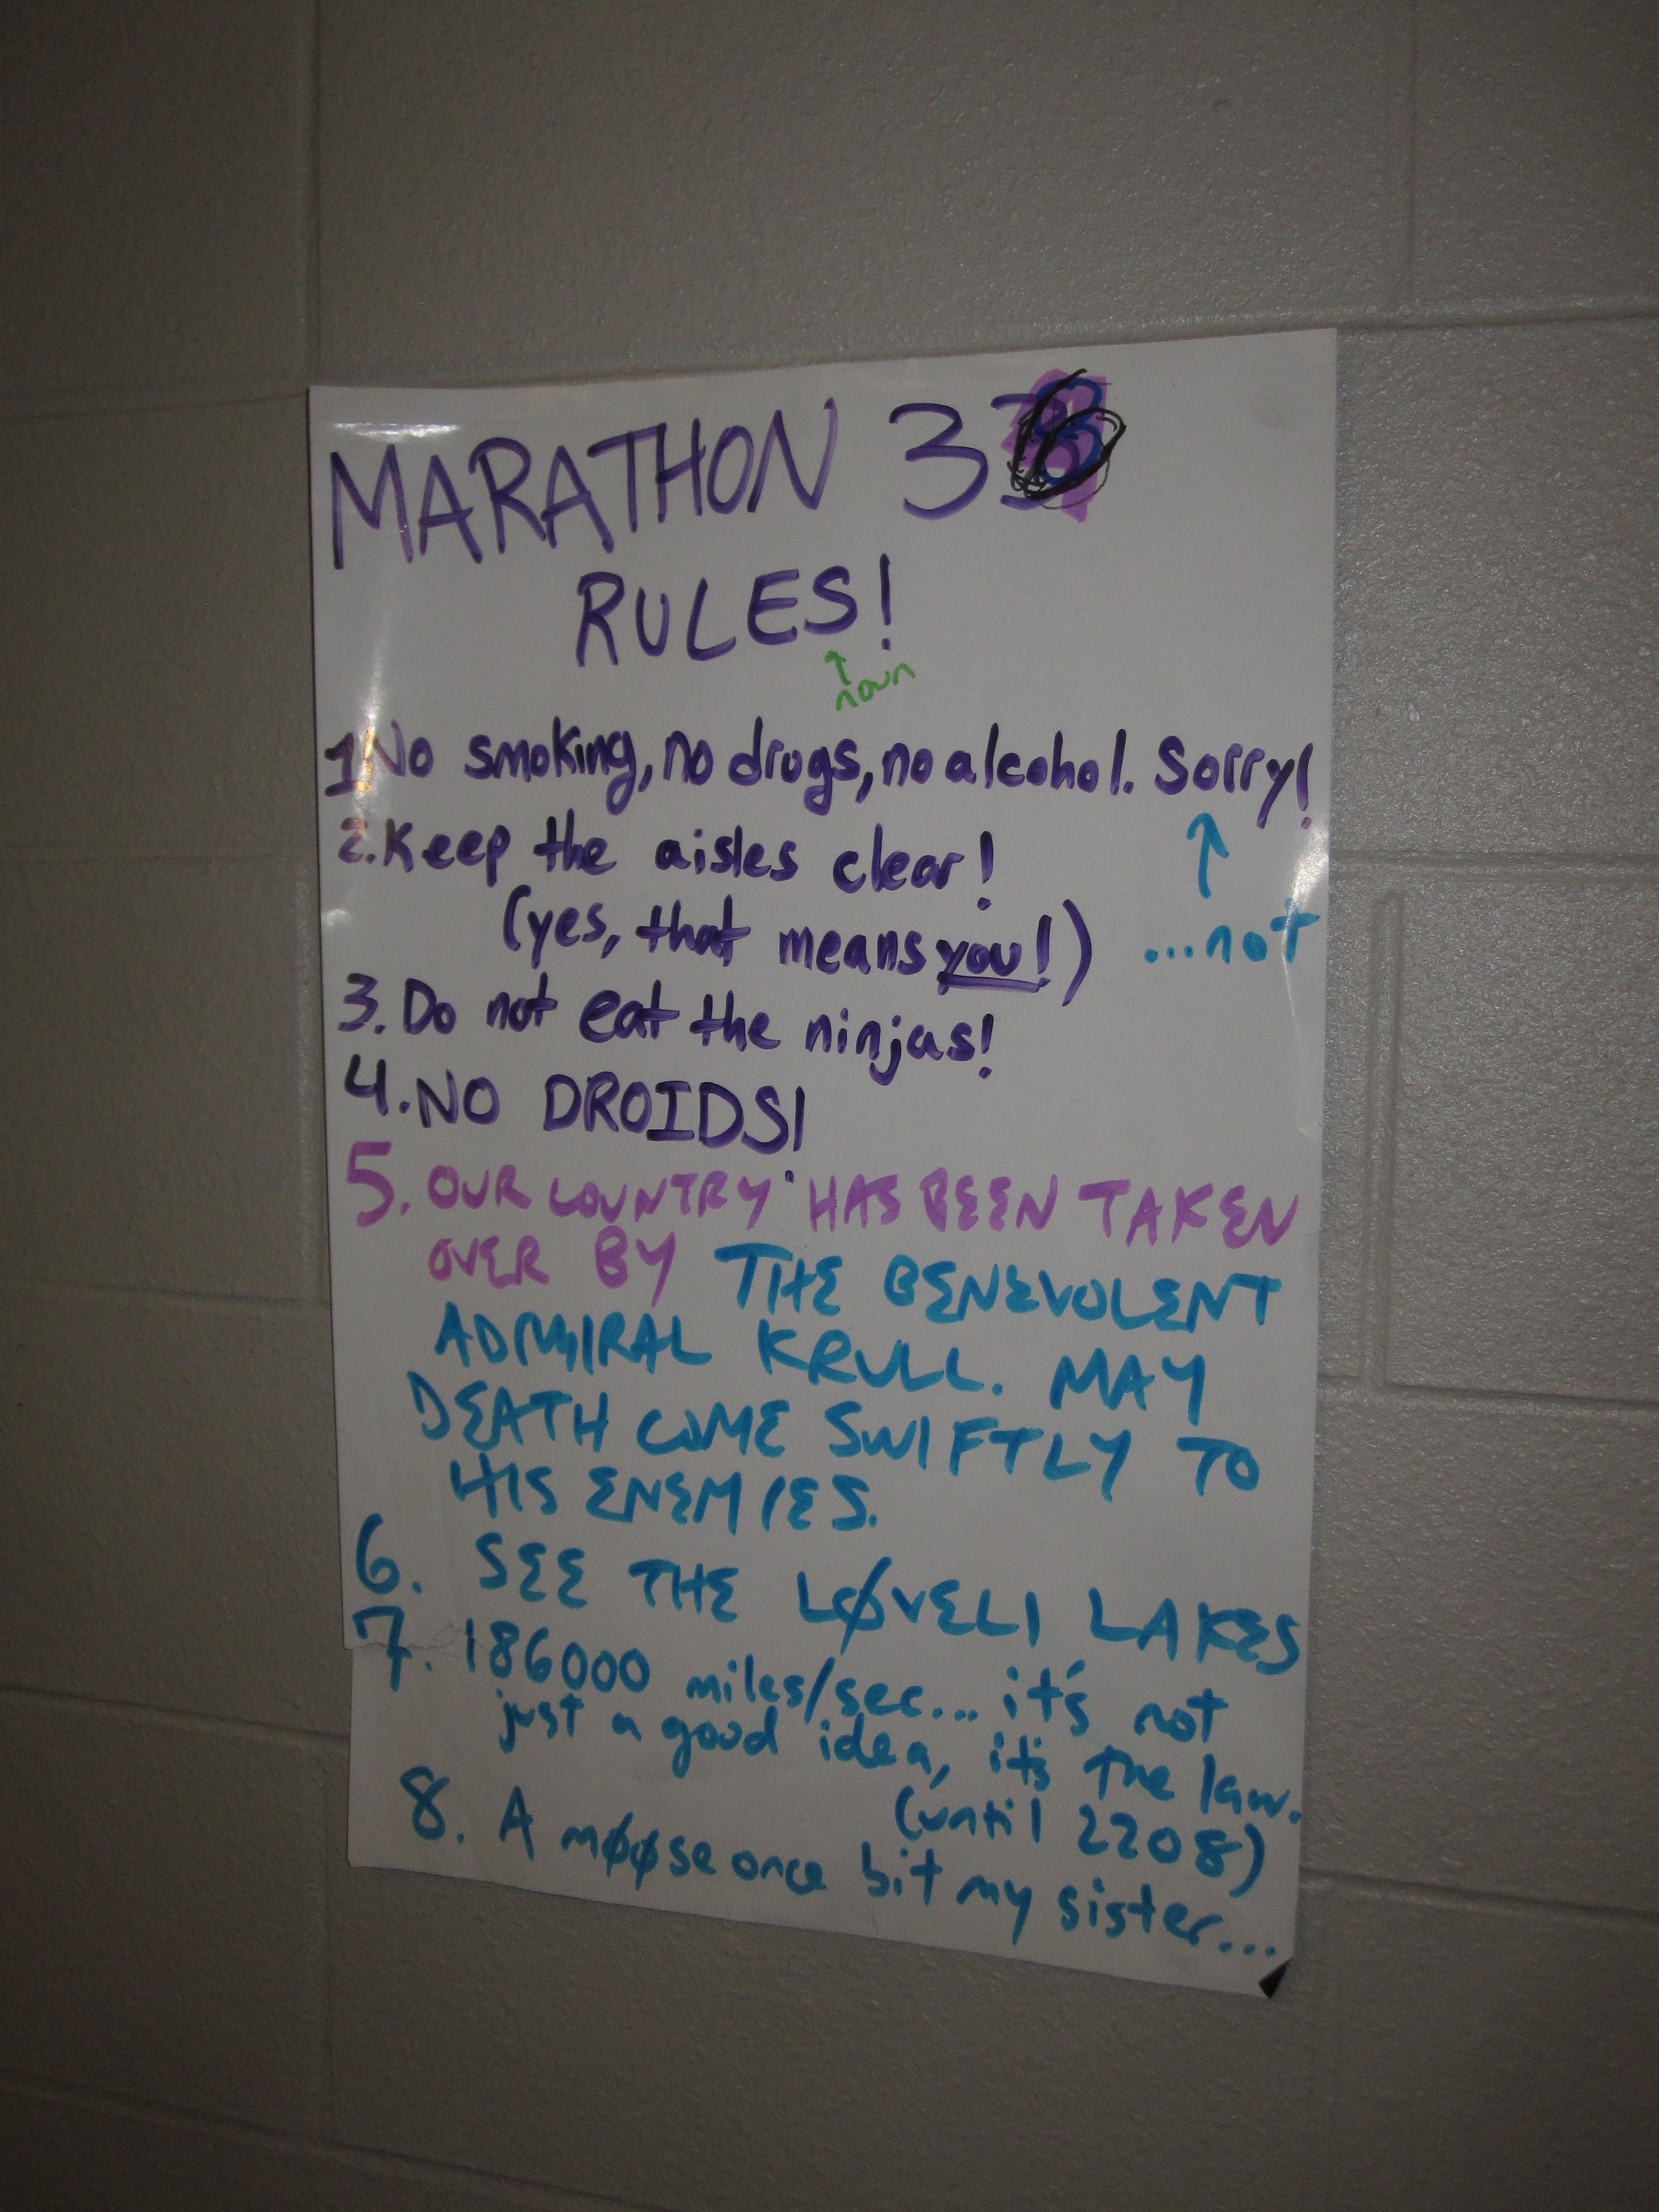 MARATHON 3
RULES!
↑
noun
1 No smoking, no drugs, no alcohol. Sorry!
↑
2. Keep the aisles clear!
(yes, that means you!) ...not
3. Do not eat the ninjas!
4. NO DROIDS!
5. OUR COUNTRY HAS BEEN TAKEN
OVER BY THE BENEVOLENT
ADMIRAL KRULL. MAY
DEATH COME SWIFTLY TO
HIS ENEMIES.
6. SEE THE LØVELI LAKES
7. 186000 miles/sec... it's not
just a good idea, it's the law.
(until 2208)
8. A møøse once bit my sister...